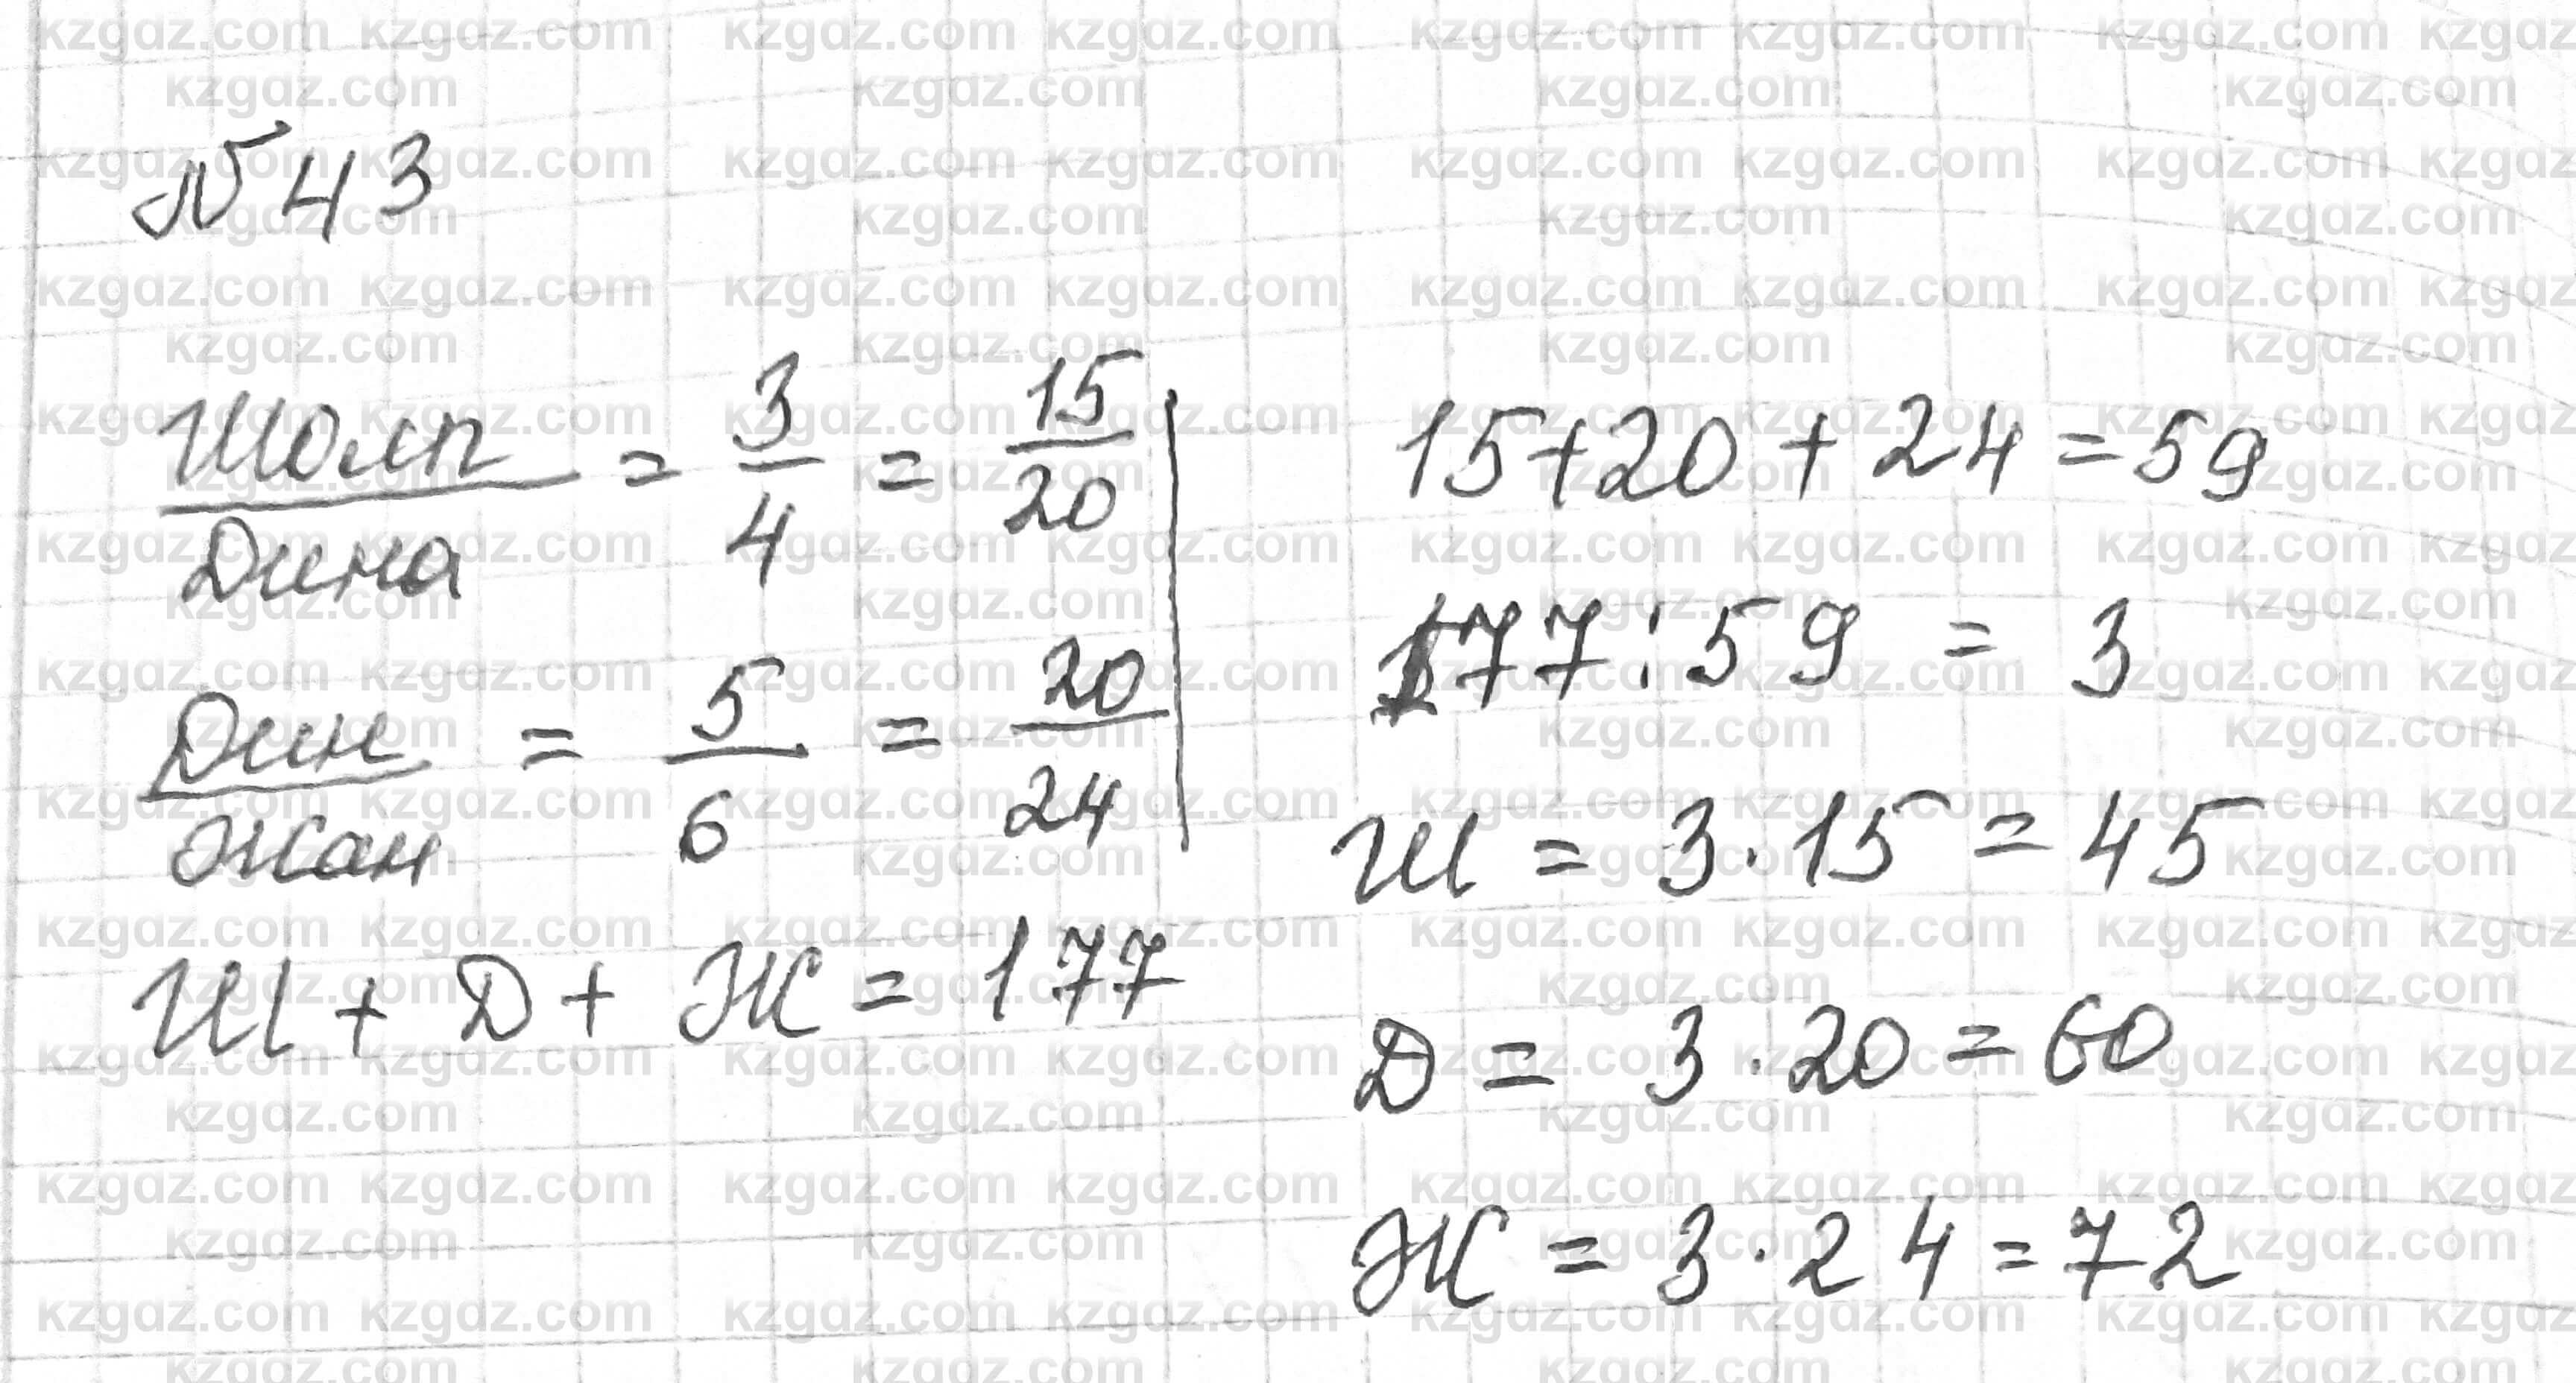 № 43
Шолп/Дина = 3/4 = 15/20
Дин/Жан = 5/6 = 20/24
Ш + Д + Ж = 177
15 + 20 + 24 = 59
177 : 59 = 3
Ш = 3 · 15 = 45
Д = 3 · 20 = 60
Ж = 3 · 24 = 72
kzgdz.com